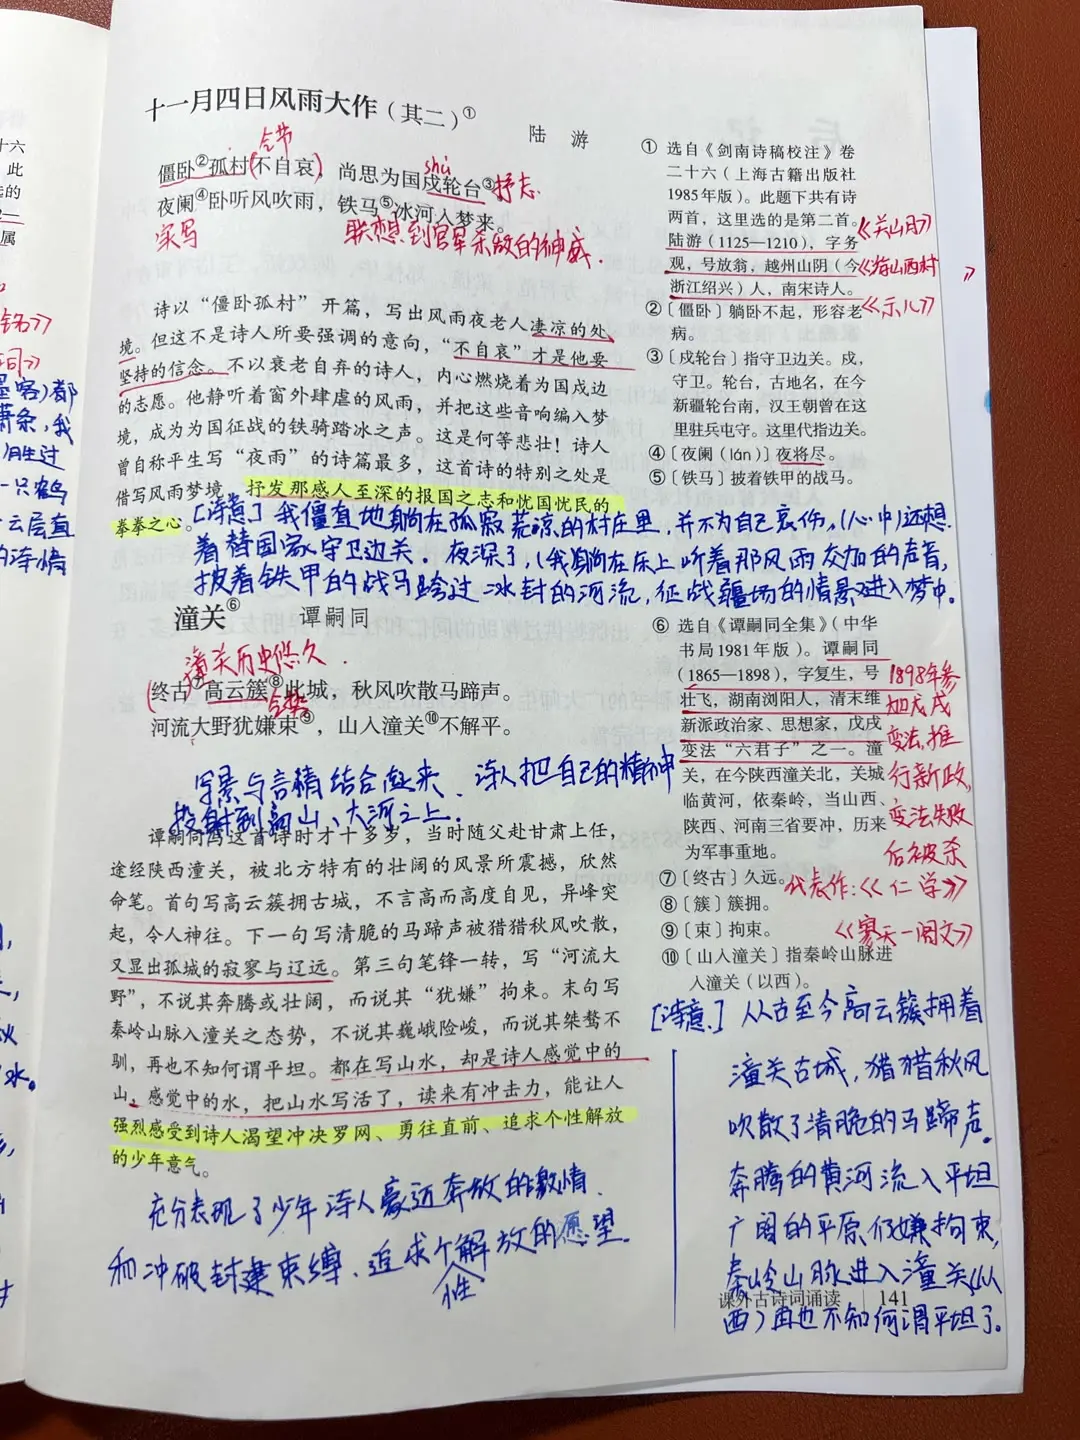 十一月四日风雨大作(其二)①
陆 游
令节
僵卧②孤村(不自哀),尚思为国戍轮台③
shù
抒志.
夜阑④卧听风吹雨,铁马⑤冰河入梦来。
实写
联想到官军杀敌的神威.
诗以“僵卧孤村”开篇,写出风雨夜老人凄凉的处
境。但这不是诗人所要强调的意向,“不自哀”才是他要
坚持的信念。不以衰老自弃的诗人,内心燃烧着为国戍边
的志愿。他静听着窗外肆虐的风雨,并把这些音响编入梦
境,成为为国征战的铁骑踏冰之声。这是何等悲壮!诗人
曾自称平生写“夜雨”的诗篇最多,这首诗的特别之处是
借写风雨梦境,抒发那感人至深的报国之志和忧国忧民的
拳拳之心。
[诗意]我僵直地躺在孤寂荒凉的村庄里,并不为自己哀伤,(心中)还想
着替国家守卫边关。夜深了,(我)躺在床上听着那风雨交加的声音,
披着铁甲的战马跨过冰封的河流,征战疆场的情景进入梦中。
① 选自《剑南诗稿校注》卷
二十六(上海古籍出版社
1985年版)。此题下共有诗
两首,这里选的是第二首。
陆游(1125—1210),字务
观,号放翁,越州山阴(今
浙江绍兴)人,南宋诗人。
《关山月》
《游山西村》
《示儿》
②〔僵卧〕躺卧不起,形容老
病。
③〔戍轮台〕指守卫边关。戍,
守卫。轮台,古地名,在今
新疆轮台南,汉王朝曾在这
里驻兵屯守。这里代指边关。
④〔夜阑(lán)〕夜将尽。
⑤〔铁马〕披着铁甲的战马。
潼关⑥
谭嗣同
潼关历史悠久.
(终古⑦高云簇⑧此城,秋风吹散马蹄声。
河流大野犹嫌束⑨,山入潼关⑩不解平。
写景与言情结合起来、诗人把自己的精神
投射到高山、大河之上.
谭嗣同写这首诗时才十多岁,当时随父赴甘肃上任,
途经陕西潼关,被北方特有的壮阔的风景所震撼,欣然
命笔。首句写高云簇拥古城,不言高而高度自见,异峰突
起,令人神往。下一句写清脆的马蹄声被猎猎秋风吹散,
又显出孤城的寂寥与辽远。第三句笔锋一转,写“河流大
野”,不说其奔腾或壮阔,而说其“犹嫌”拘束。末句写
秦岭山脉入潼关之态势,不说其巍峨险峻,而说其桀骜不
驯,再也不知何谓平坦。都在写山水,却是诗人感觉中的
山,感觉中的水,把山水写活了,读来有冲击力,能让人
强烈感受到诗人渴望冲决罗网、勇往直前、追求个性解放
的少年意气。
充分表现了少年诗人豪迈奔放的激情
和冲破封建束缚、追求个性解放的愿望.
⑥ 选自《谭嗣同全集》(中华
书局1981年版)。谭嗣同
(1865—1898),字复生,号
壮飞,湖南浏阳人,清末维
新派政治家、思想家,戊戌
变法“六君子”之一。潼
关,在今陕西潼关北,关城
临黄河,依秦岭,当山西、
陕西、河南三省要冲,历来
为军事重地。
1898年参
加戊戌
变法,推
行新政,
变法失败
后被杀
⑦〔终古〕久远。
代表作:《仁学》
⑧〔簇〕簇拥。
⑨〔束〕拘束。
《寥天一阁文》
⑩〔山入潼关〕指秦岭山脉进
入潼关(以西)。
[诗意.] 从古至今高云簇拥着
潼关古城,猎猎秋风
吹散了清脆的马蹄声。
奔腾的黄河流入平坦
广阔的平原仍嫌拘束,
秦岭山脉进入潼关(以
西)再也不知何谓平坦了。
课外古诗词诵读 | 141